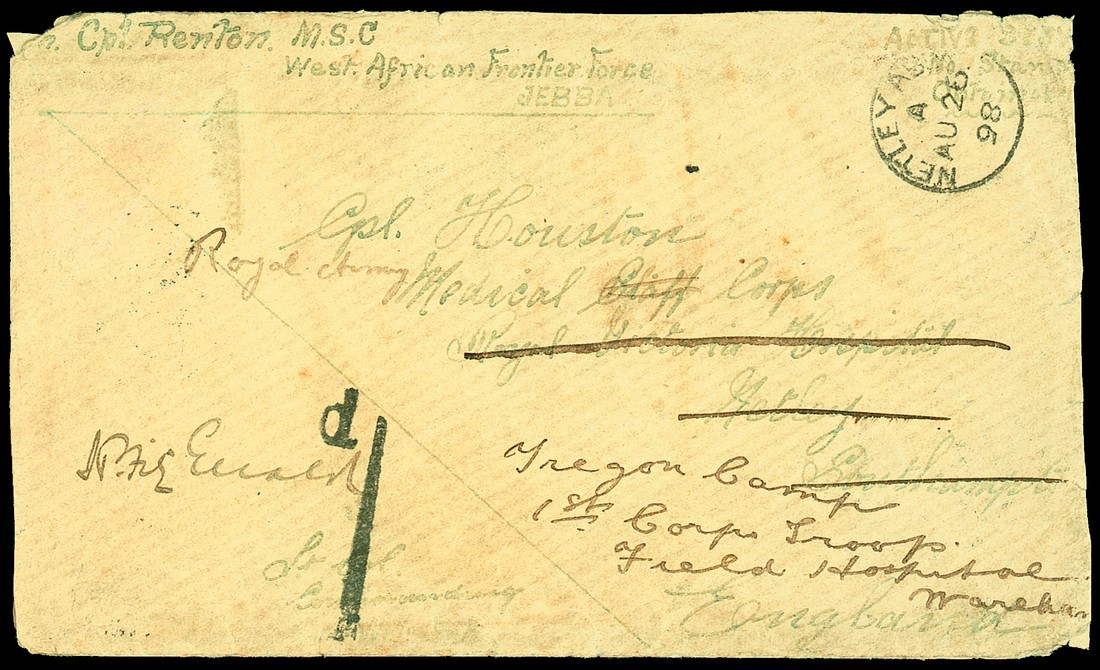 Cpl. Renton. M.S.C
West. African Frontier Force
JEBBA
Active
No. Stamps
NETLEY
A
AU 26
98
Cpl. Houston
Royal Army Medical Staff Corps
Royal Victoria Hospital
Netley
Southampt
d
1
Lt Col.
Commanding
Tregon Camp
1st Corps Troop.
Field Hospital
Wareham
England